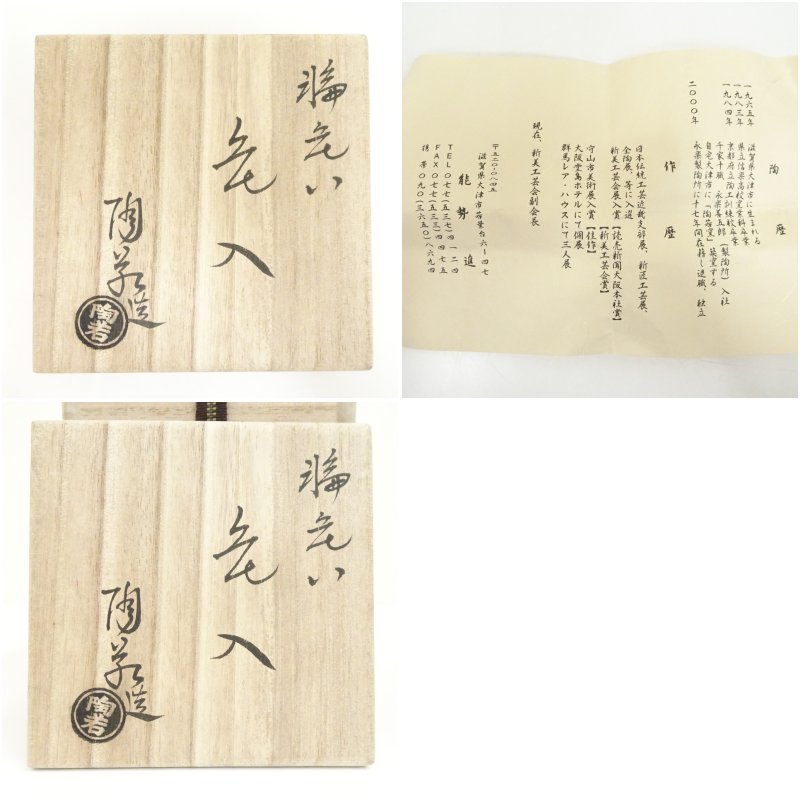 花
入
陶若造
陶若
陶歴
一九六五年 滋賀県大津市に生まれる
一九八三年 県立信楽高校窯業科卒業
一九八四年 京都府立陶工訓練校卒業
千家十職 永楽善五郎(製陶所)入社
自宅大津市に「陶若窯」築窯する
二〇〇〇年 永楽製陶所に十七年間在籍し退職、独立
作歴
日本伝統工芸近畿支部展、新匠工芸展、
全陶展、等に入選
新美工芸会展入賞【読売新聞大阪本社賞】
【新美工芸会賞】
守山市美術展入賞【佳作】
大阪堂島ホテルにて個展
群馬レア・ハウスにて三人展
現在、新美工芸会副会長
〒五二〇-〇八四五
滋賀県大津市若葉台六-四七
能勢 進
TEL〇七七(五三七)四一二四
FAX〇七七(五三三)四四七五
携帯〇九〇(三六五〇)八六九四
花
入
陶若造
陶若